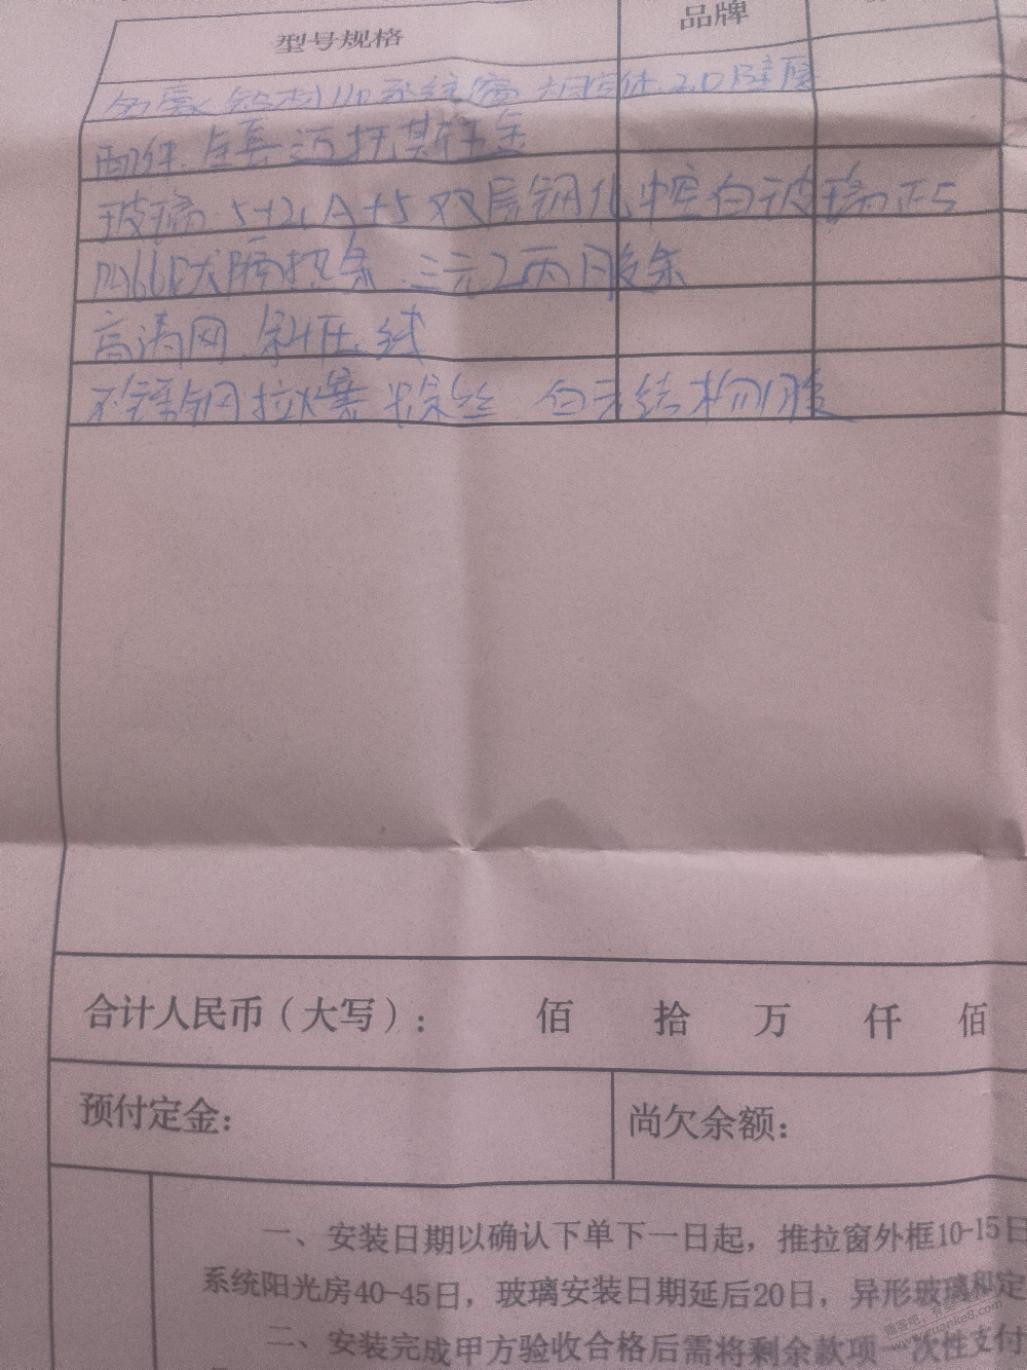 型号规格 品牌
铝材110系统窗 2.0壁厚
配件.全套迈托斯五金
玻璃.5+21A+5双层钢化中空白玻璃正5
PA66尼龙隔热条.三元乙丙胶条
高清网.斜压线
不锈钢拉爆螺丝 白云结构胶
合计人民币（大写）: 佰 拾 万 仟 佰
预付定金: 尚欠余额:
一、安装日期以确认下单下一日起，推拉窗外框10-15日
系统阳光房40-45日，玻璃安装日期延后20日，异形玻璃和定
二、安装完成甲方验收合格后需将剩余款项一次性支付